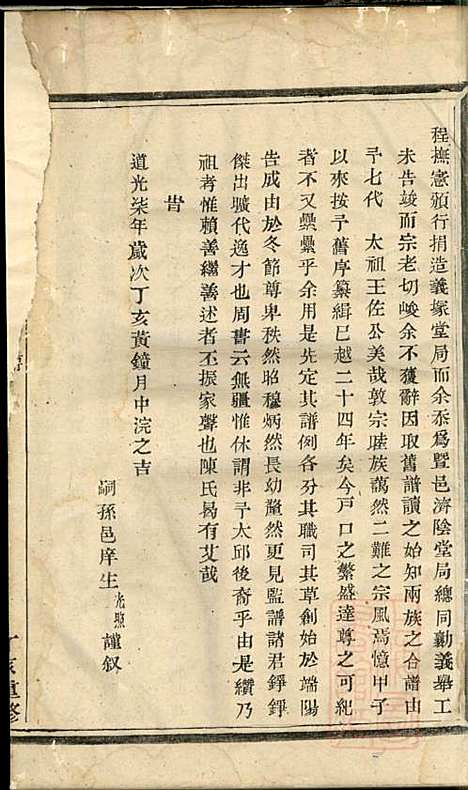 程撫憲頒行捐造義塚堂局而余忝爲暨邑濟陰堂局總同勷義舉工
未告竣而宗老切峻余不獲辭因取舊譜讀之始知兩族之合譜由
予七代　太祖王佐公美哉敦宗睦族藹然二難之宗風焉憶甲子
以來按予舊序纂緝已越二十四年矣今戶口之繁盛達尊之可紀
者不又纍纍乎余用是先定其譜例各分其職司其草創始於端陽
告成由於冬節尊卑秩然昭穆炳然長幼釐然更見監譜諸君錚錚
傑出曠代逸才也周書云無疆惟休謂非予太邱後裔乎由是纘乃
祖考惟賴善繼善述者丕振家聲也陳氏曷有艾哉
旹
道光柒年歲次丁亥黃鐘月中浣之吉
嗣孫邑庠生光照謹叙
丁亥重修